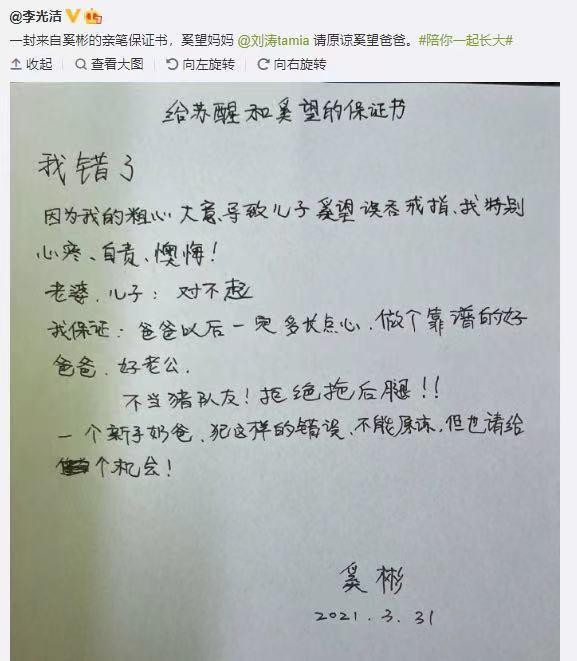 @李光洁
一封来自奚彬的亲笔保证书，奚望妈妈 @刘涛tamia 请原谅奚望爸爸。#陪你一起长大#
收起 查看大图 向左旋转 向右旋转
给苏醒和奚望的保证书
我错了
因为我的粗心大意、导致儿子奚望误吞戒指、我特别
心疼、自责、懊悔！
老婆、儿子：对不起
我保证：爸爸以后一定多长点心、做个靠谱的好
爸爸、好老公.
不当猪队友！拒绝拖后腿！！
一个新手奶爸、犯这样的错误、不能原谅、但也请给
个机会！
奚彬
2021.3.31